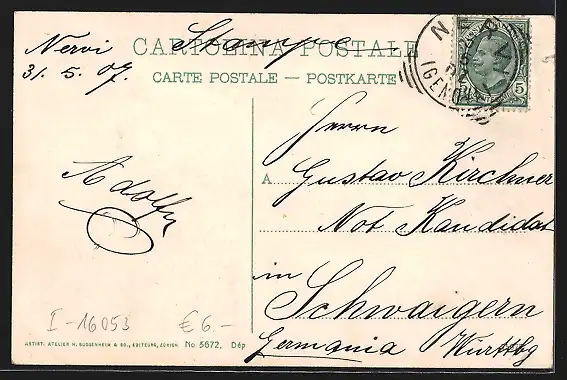 Nervi Stampe
31. 5. 07.
CARTOLINA POSTALE
CARTE POSTALE — POSTKARTE
NERVI
(GENOVA)
5
Herrn
A Gustav Kirchner
Not Kandidat
in Schwaigern
Germania Württbg
Adolf
I-16053 €6.-
ARTIST. ATELIER H. GUGGENHEIM & CO., EDITEURS, ZÜRICH No 5672, Dép